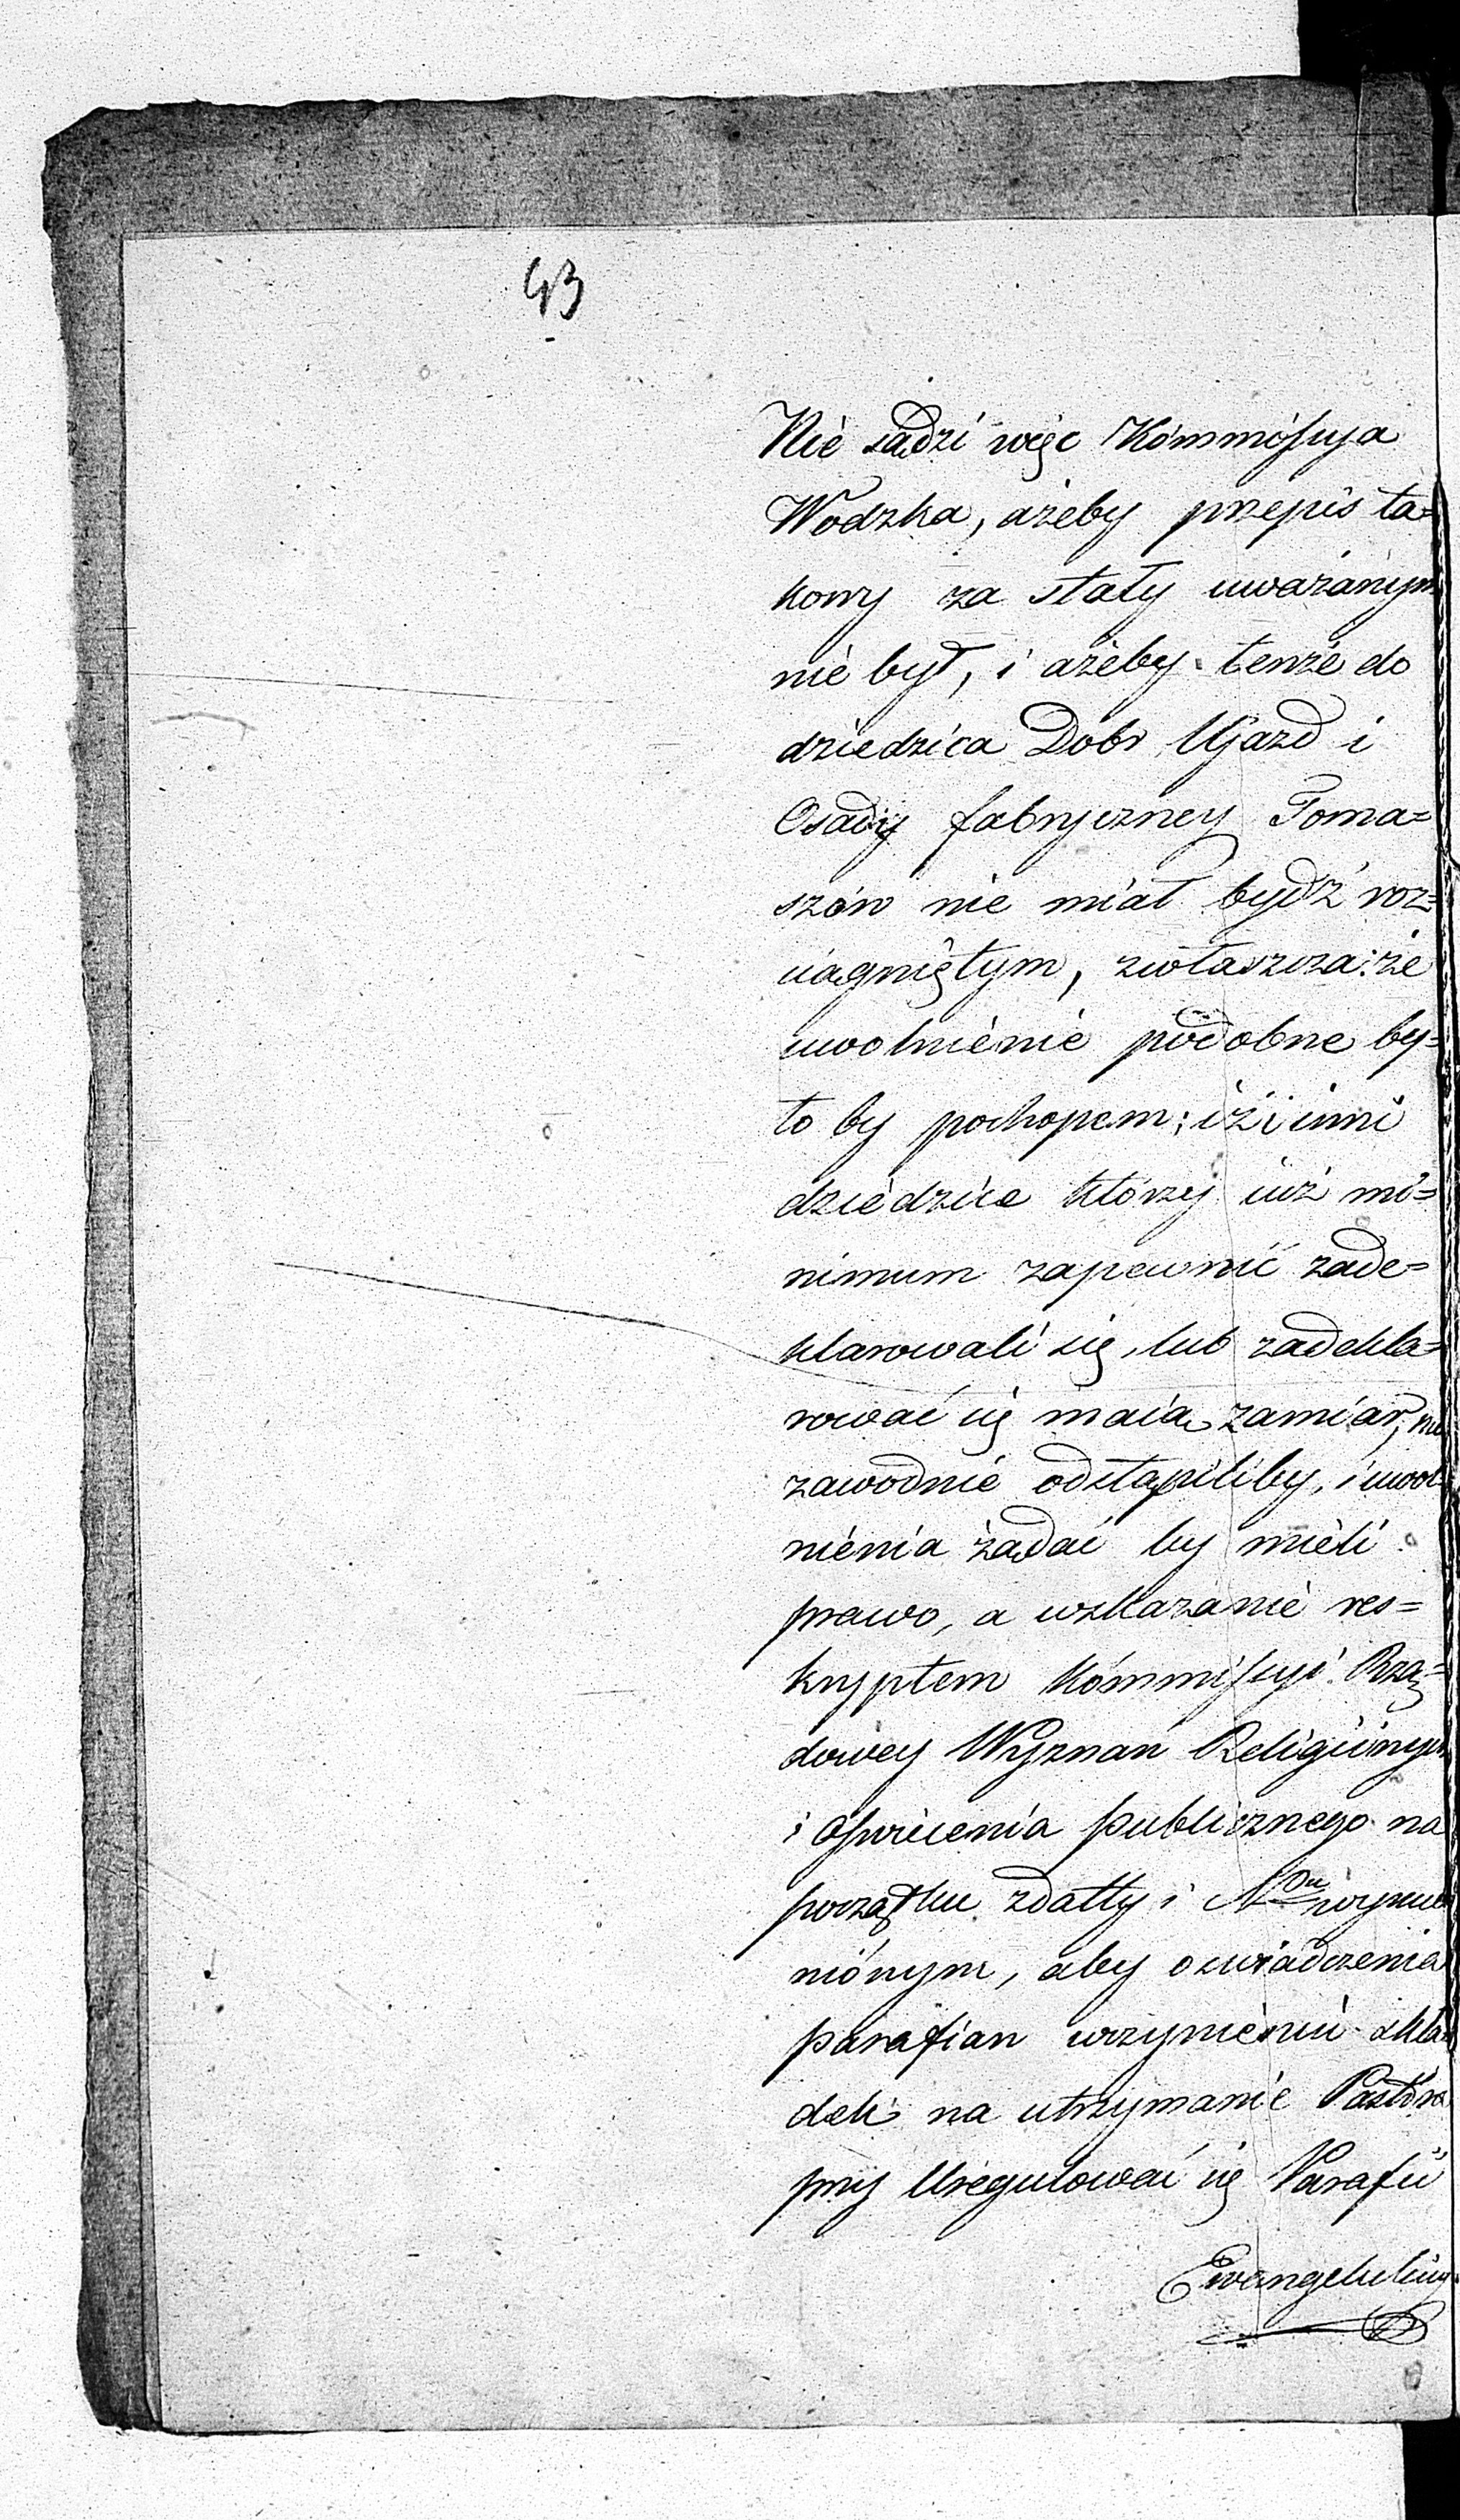 43
Nie sądzi więc Kommissyja
Wodzka, ażeby przepis ta=
kowy za stały uważanym
nie był, i ażeby tenże do
dziedzica Dobr Ujazd i
Osady fabryczney Toma=
szów nie miał bydź roz=
ciągniętym, zwłaszcza: że
uwolnienie podobne by=
ło by pochopem; iż i inni
dziedzice którzy iuż mi=
nimum zapewnić zade=
klarowali się, lub zadekla=
rować się maią zamiar, nie
zawodnie odstąpiliby, i uwol=
nienia żądać by mieli
prawo, a wskazanie res=
kryptem Kommissyi Rzą=
dowey Wyznań Religiinych
i Oświecenia publicznego na
początku z datty i N
nionym, aby oświadczenia
parafian uczynienia skła
dek na utrzymanie Pastora
przy Uregulować się Parafii
Ewangelickiey